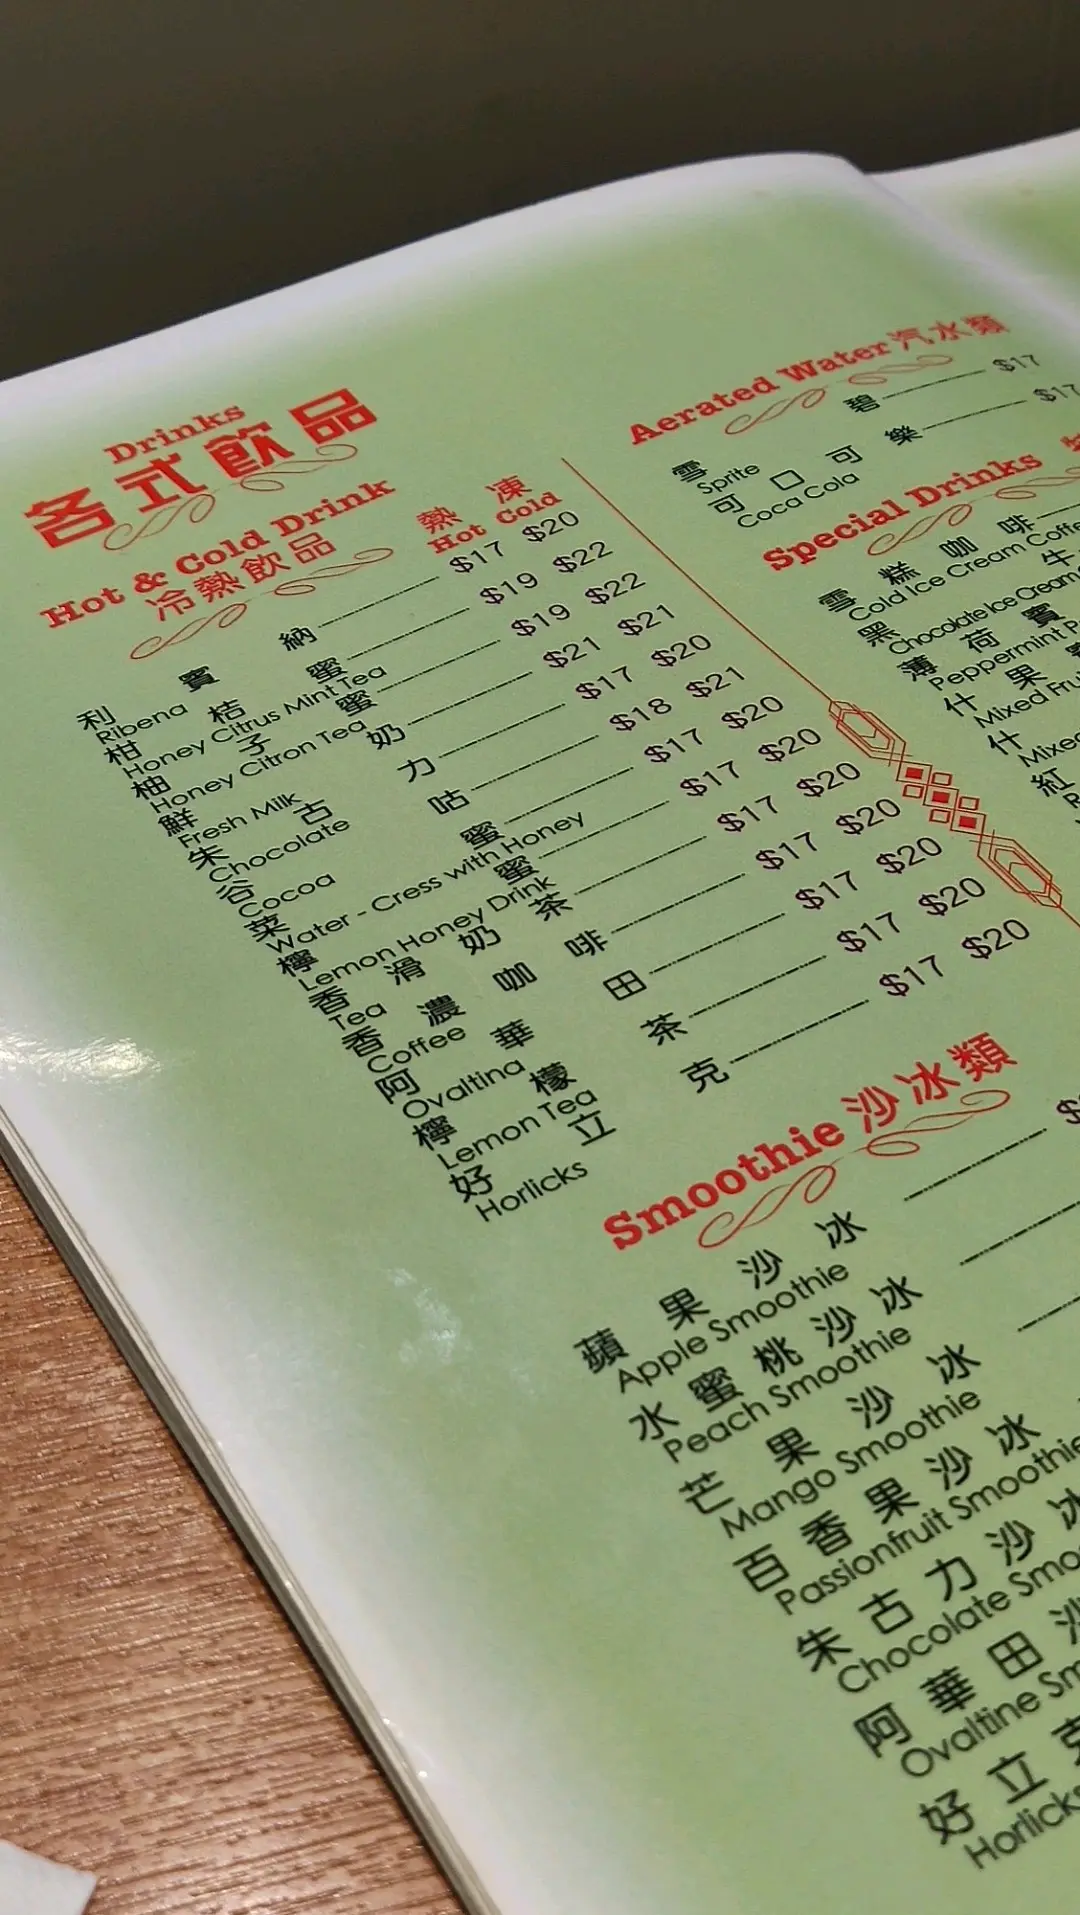 Drinks
各式飲品
Hot & Cold Drink
冷熱飲品
熱 凍
Hot Cold
利賓納 $17 $20
Ribena
柑桔蜜 $19 $22
Honey Citrus Mint Tea
柚子蜜 $19 $22
Honey Citron Tea
鮮奶 $21 $21
Fresh Milk
朱古力 $17 $20
Chocolate
谷咕 $18 $21
Cocoa
菜蜜 $17 $20
Water - Cress with Honey
檸蜜 $17 $20
Lemon Honey Drink
香滑奶茶 $17 $20
Tea
香濃咖啡 $17 $20
Coffee
阿華田 $17 $20
Ovaltina
檸檬茶 $17 $20
Lemon Tea
好立克 $17 $20
Horlicks
Aerated Water 汽水類
雪碧 $17
Sprite
可口可樂 $17
Coca Cola
Special Drinks
雪糕咖啡
Cold Ice Cream
黑牛
Chocolate Ice Cream
薄荷賓
Peppermint
什果賓
Mixed
什
Mixed
紅
Smoothie 沙冰類
蘋果沙冰
Apple Smoothie
水蜜桃沙冰
Peach Smoothie
芒果沙冰
Mango Smoothie
百香果沙冰
Passionfruit Smoothie
朱古力沙冰
Chocolate
阿華田沙
Ovaltine
好立克
Horlicks